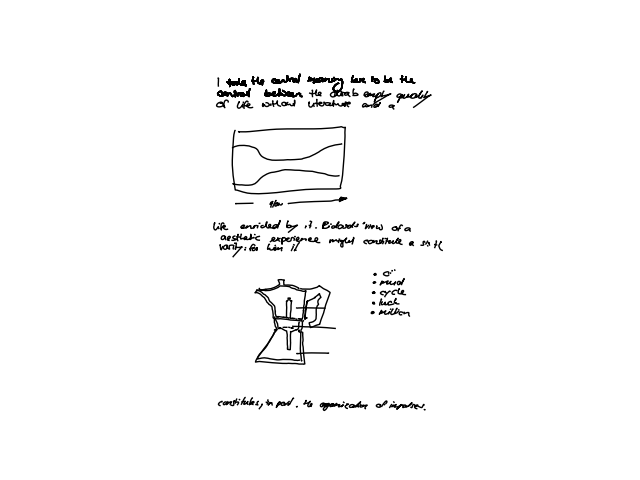 I take the central meaning here to be the
contrast between the drab empty quality
of life without literature and a
flow
life enriched by it. Richards' view of
aesthetic experience might constitute a
for him it
• oi
• mud
• cycle
• luck
• million
constitutes, in part, the organisation of impulses.